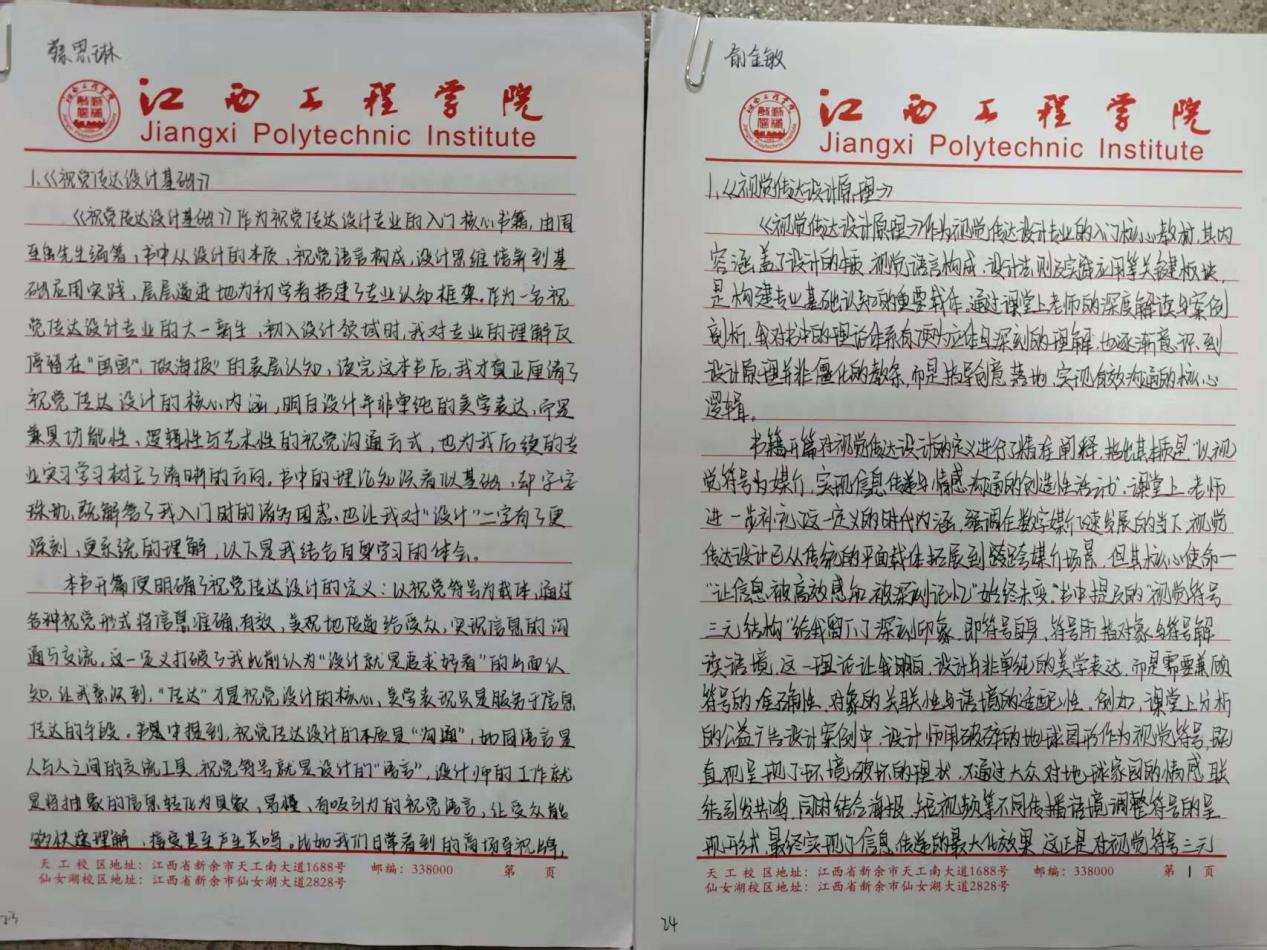 思琳
江西工程学院
Jiangxi Polytechnic Institute
1.《视觉传达设计基础》
《视觉传达设计基础》作为视觉传达设计专业的入门核心书籍,由周
先生编著,书中从设计的本质、视觉语言构成,设计思维培养到基
础应用实践,层层递进地为初学者搭建了专业认知框架。作为一名视
觉传达设计专业的大一新生,初入设计领域时,我对专业的理解仅
停留在"画画","做海报"的表层认知,读完这本书后,我才真正厘清了
视觉传达设计的核心内涵,明白设计并非单纯的美学表达,而是
兼具功能性、逻辑性与艺术性的视觉沟通方式,也为我后续的专
业实习学习树立了清晰的方向。书中的理论知识看似基础,却字字
珠玑,既解答了我入门时的诸多困惑,也让我对"设计"二字有了更
深刻,更系统的理解,以下是我结合自身学习的体会。
本书开篇便明确了视觉传达设计的定义:以视觉符号为载体,通过
各种视觉形式将信息准确,有效,美观地传递给受众,实现信息的沟
通与交流。这一定义打破了我此前认为"设计就是追求好看"的片面认
知,让我意识到,"传达"才是视觉设计的核心,美学表现只是服务于信息
传达的手段。书中提到,视觉传达设计的本质是"沟通",如同语言是
人与人之间的交流工具,视觉符号就是设计的"语言",设计师的工作就
是将抽象的信息转化为具象,易懂,有吸引力的视觉语言,让受众能
够快速理解,接受甚至产生共鸣。比如我们日常看到的商场导视牌,
天工校区地址:江西省新余市天工南大道1688号 邮编:338000 第 页
仙女湖校区地址:江西省新余市仙女湖大道2828号
23
俞金敏
江西工程学院
Jiangxi Polytechnic Institute
1.《视觉传达设计原理》
《视觉传达设计原理》作为视觉传达设计专业的入门核心教材,其内
容涵盖了设计的本质、视觉语言构成、设计法则及实践应用等关键板块,
是构建专业基础认知的重要载体。通过课堂上老师的深度解读与案例
剖析,我对书中的理论体系有了更为立体且深刻的理解,也逐渐意识到
设计原理并非僵化的教条,而是指导创意落地,实现有效沟通的核心
逻辑。
书籍开篇对视觉传达设计的定义进行了精准阐释,指出其本质是"以视
觉符号为媒介,实现信息传递与情感沟通的创造性活动"。课堂上,老师
进一步补充了这一定义的时代内涵,强调在数字媒介快速发展的当下,视觉
传达设计已从传统的平面载体拓展到跨媒介场景,但其核心使命一
"让信息被高效感知,被深刻记忆"始终未变。书中提及的"视觉符号
三元结构"给我留下了深刻印象,即符号自身、符号所指对象与符号解
读语境,这一理论让我明白,设计并非单纯的美学表达,而是需要兼顾
符号的准确性、对象的关联性与语境的适配性。例如,课堂上分析
的公益广告设计案例中,设计师用破碎的地球图形作为视觉符号,既
直观呈现了环境破坏的现状,又通过大众对地球家园的情感联
结引发共鸣,同时结合海报、短视频等不同传播语境调整符号的呈
现形式,最终实现了信息传递的最大化效果,这正是对视觉符号三元
天工校区地址:江西省新余市天工南大道1688号 邮编:338000 第1页
仙女湖校区地址:江西省新余市仙女湖大道2828号
24